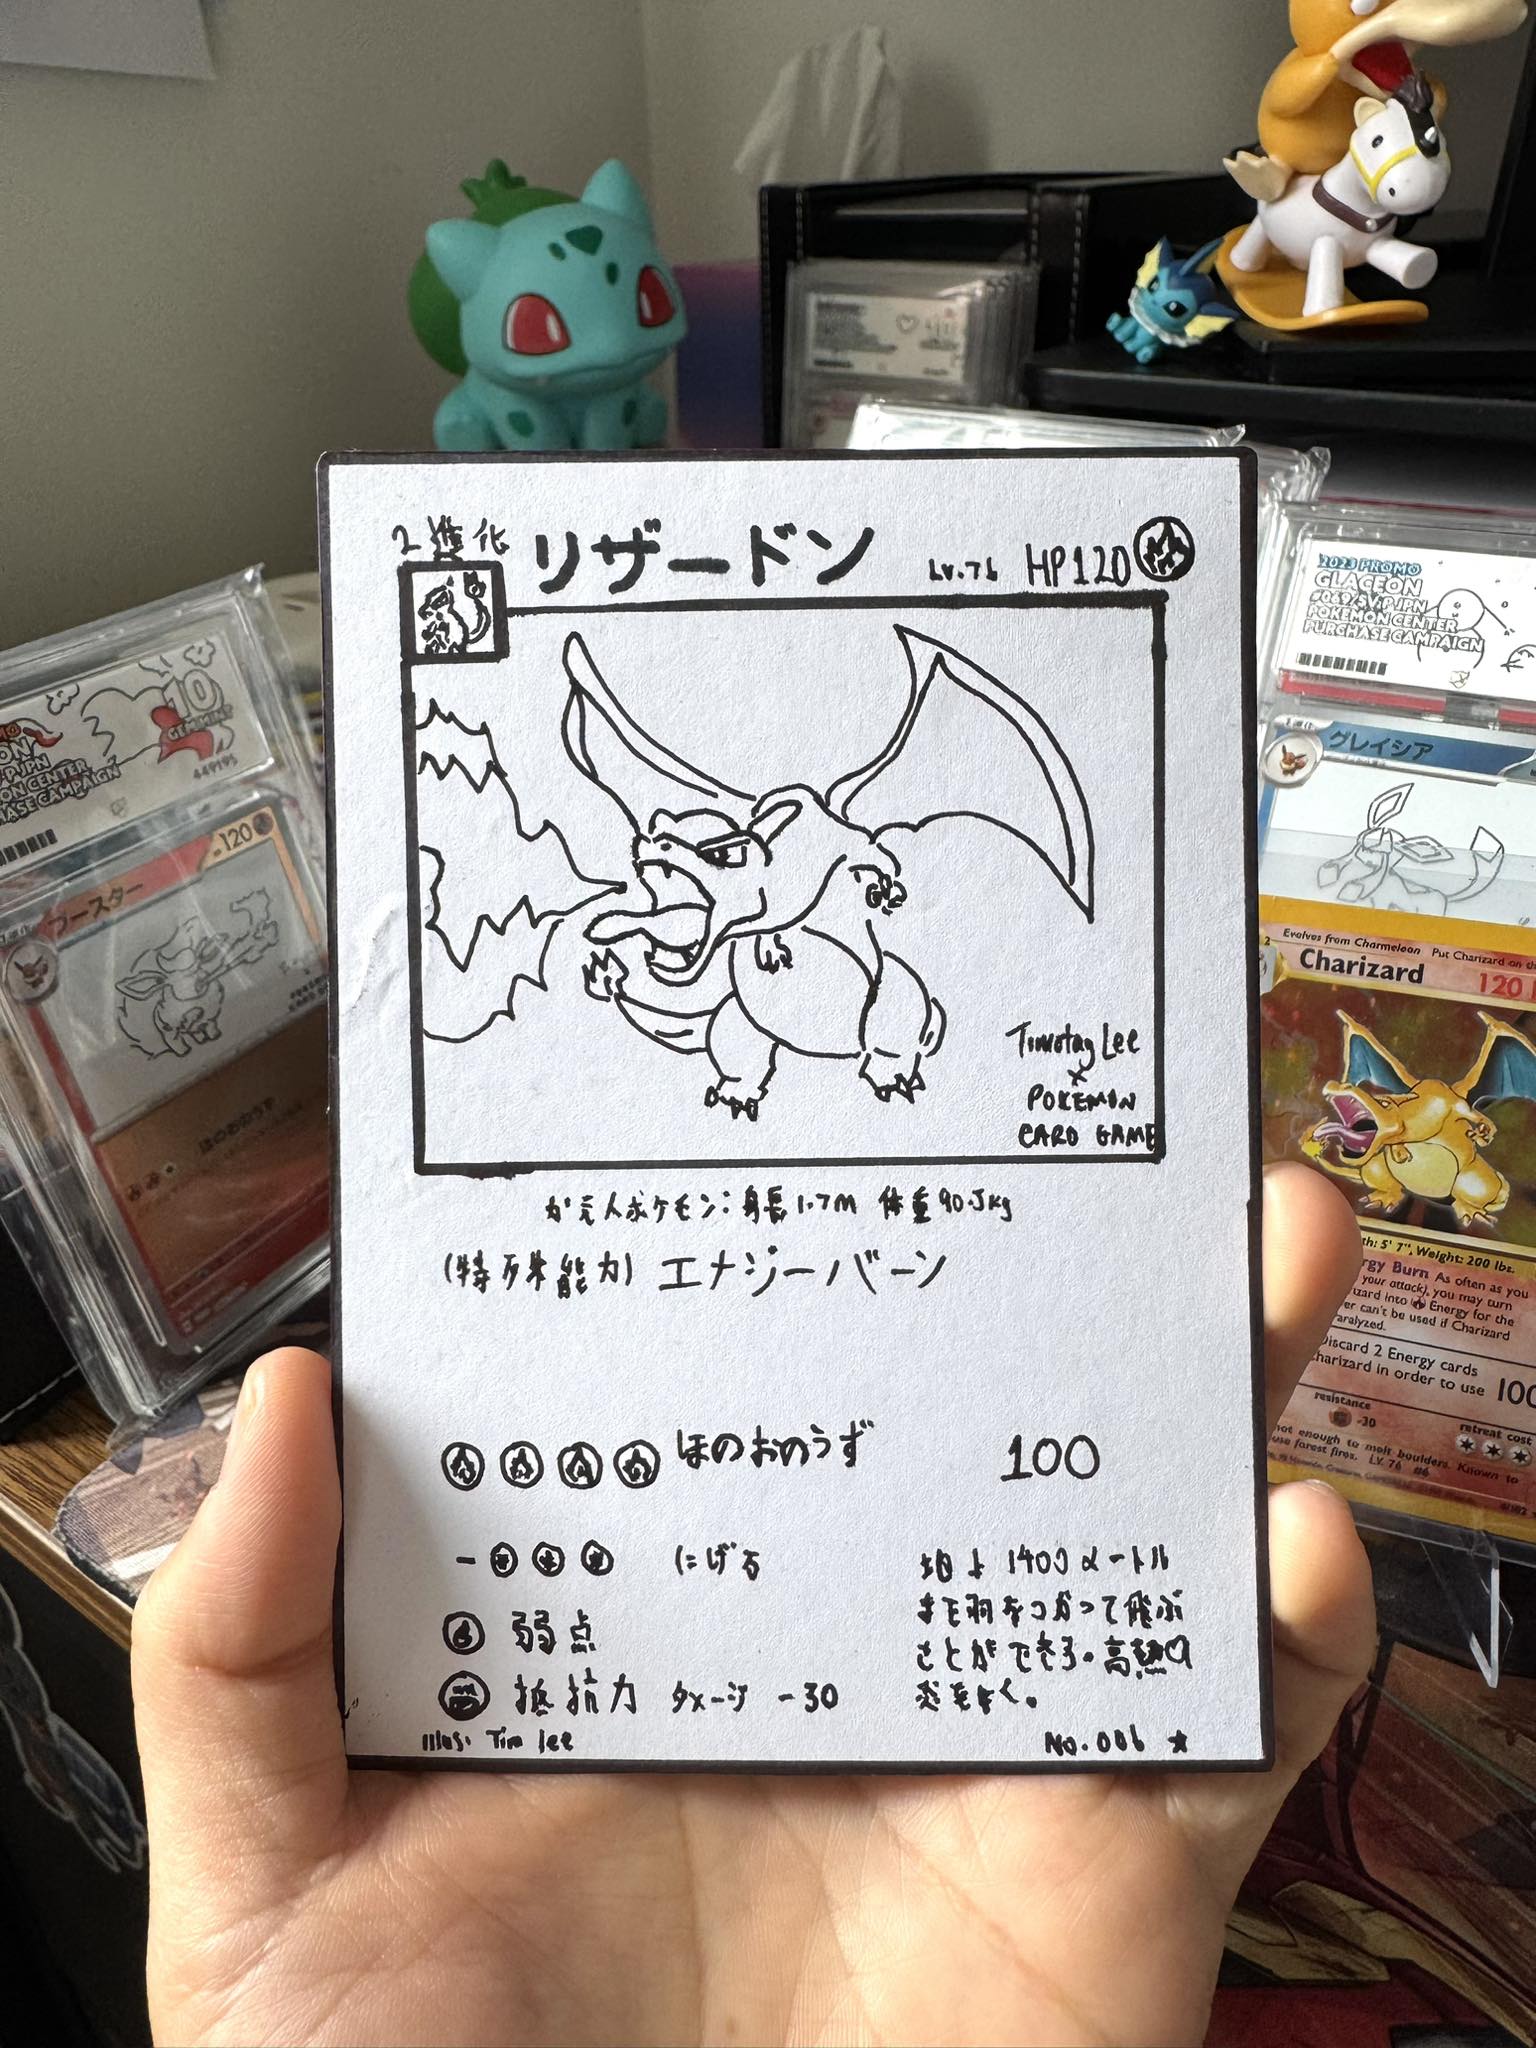 2進化 リザードン LV.76 HP120
Timothy Lee
×
POKEMON
CARD GAME
かえんポケモン:身長1.7m 体重90.5kg
(特殊能力) エナジーバーン
ほのおのうず 100
- にげる
弱点
抵抗力 ダメージ -30
地上1400メートル
まで羽をつかって飛ぶ
ことができる。高熱の
炎をはく。
Illus. Tim Lee
No.006 ★
10
GEM MINT
449195
PJPN
CENTER
CAMPAIGN
ブースター
120
ほのおのうず
2023 PROMO
GLACEON
#069/SV-PJPN
POKEMON CENTER
PURCHASE CAMPAIGN
グレイシア
Evolves from Charmeleon Put Charizard on th
Charizard 120
5' 7", Weight: 200 lbs.
rgy Burn As often as you
your attack), you may turn
izard into Energy for the
er can't be used if Charizard
aralyzed.
Discard 2 Energy cards
harizard in order to use 100
resistance
-30
retreat cost
not enough to melt boulders. Known to
use forest fires. LV. 76 #6